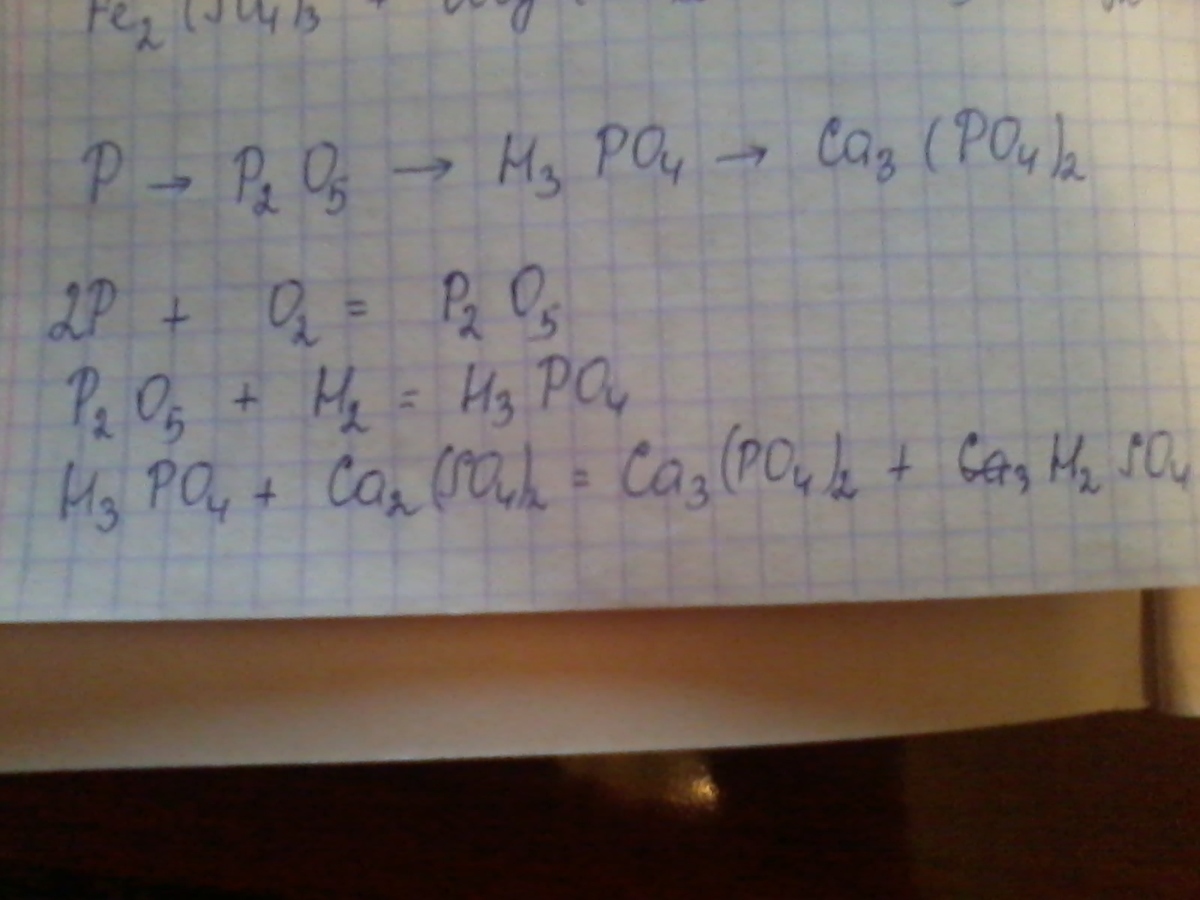 Fe₂(SO₄)₃ +
P → P₂O₅ → H₃PO₄ → Ca₃(PO₄)₂
2P + O₂ = P₂O₅
P₂O₅ + H₂ = H₃PO₄
H₃PO₄ + Ca₂(SO₄)₂ = Ca₃(PO₄)₂ + Ca₃ H₂SO₄